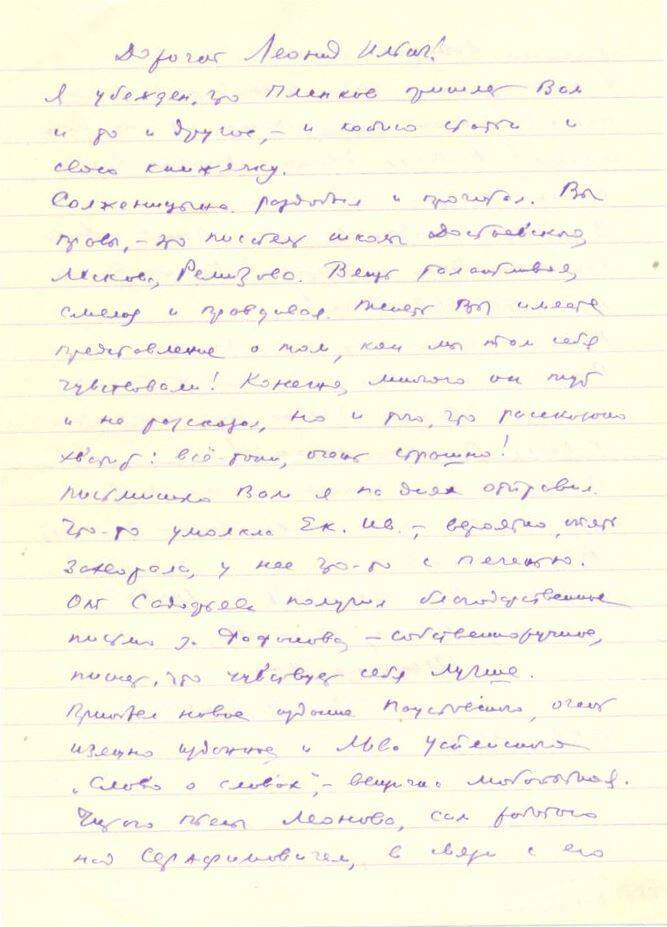 Дорогой Леонид Ильич!
Я убежден, что пришлет Вам
и то и другое, – и статьи и
свою книжечку.
Солженицына раздобыл и прочитал. Вы
правы, – это писатель школы Достоевского,
Лескова, Ремизова. Вещь талантливая,
смелая и правдивая. Теперь Вы имеете
представление о том, как мы там себя
чувствовали! Конечно, многого он тут
и не рассказал, но и того, что рассказано
хватит: всё-таки, очень страшно!
Письмишко Вам я на днях отправил.
Что-то умолкла Ек. Ив., – вероятно, опять
захворала, у нее что-то с печенью.
От получил благодарственное
письмо за – собственноручное,
пишет, что чувствует себя лучше.
новое издание Паустовского, очень
изящно изданное и Льва Успенского
„Слово о словах", – вещичка любопытная.
Читаю пьесы Леонова, сам работаю
над Серафимовичем, в связи с его